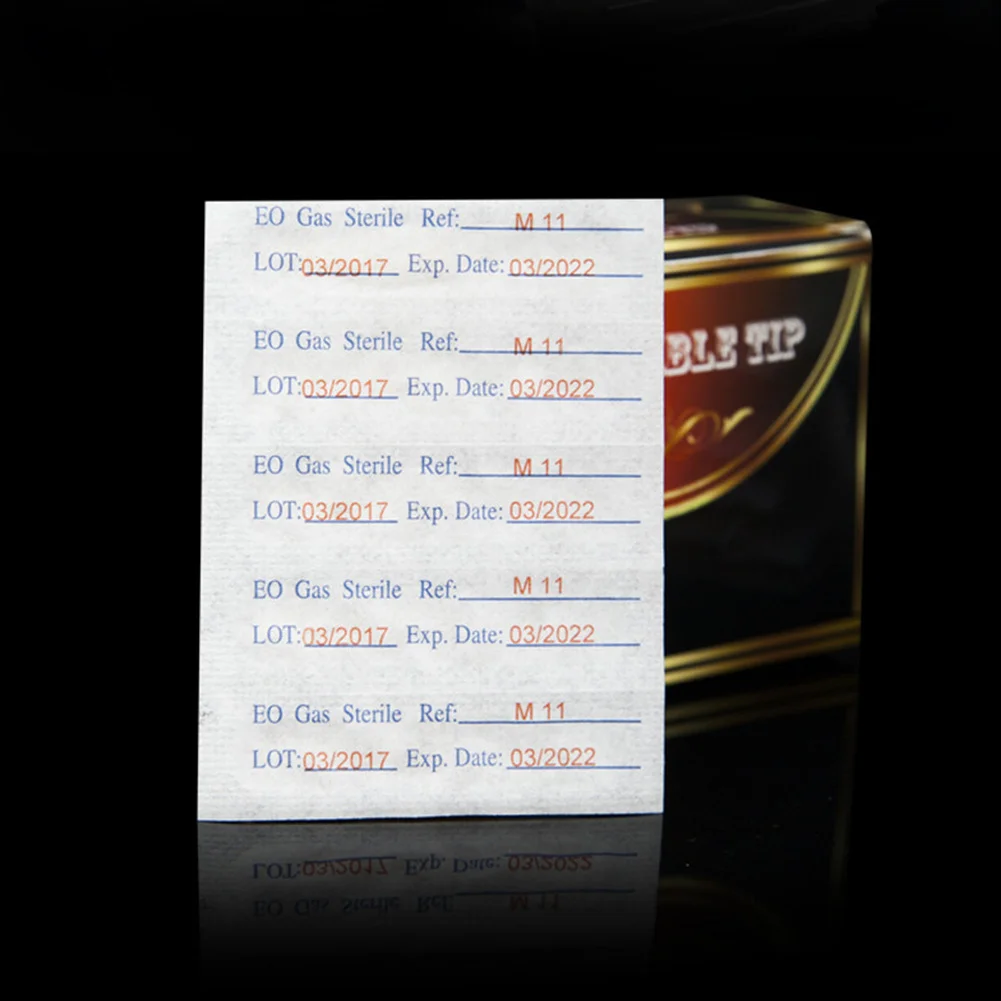 EO Gas Sterile Ref: M 11
LOT:03/2017 Exp. Date: 03/2022
EO Gas Sterile Ref: M 11
LOT:03/2017 Exp. Date: 03/2022
EO Gas Sterile Ref: M 11
LOT:03/2017 Exp. Date: 03/2022
EO Gas Sterile Ref: M 11
LOT:03/2017 Exp. Date: 03/2022
EO Gas Sterile Ref: M 11
LOT:03/2017 Exp. Date: 03/2022
BLE TIP